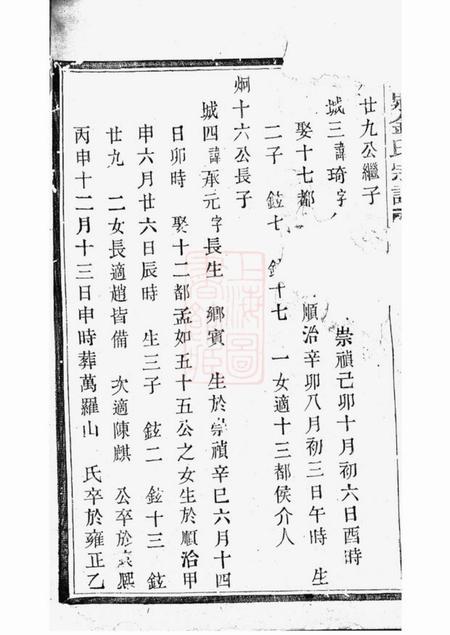 氏宗譜
廿九公繼子
城三諱琦字
崇禎己卯十月初六日酉時
娶十七都
順治辛卯八月初三日午時 生
二子 鉉七 鉉十七 一女適十三都侯介人
炯十六公長子
城四諱承元字長生 鄉賓 生於崇禎辛巳六月十四
日卯時 娶十二都孟如五十五公之女生於順治甲
申六月廿六日辰時 生三子 鉉二 鉉十三 鉉
廿九 二女長適趙皆備 次適陳麒 公卒於康熙
丙申十二月十三日申時葬萬羅山 氏卒於雍正乙
上海圖